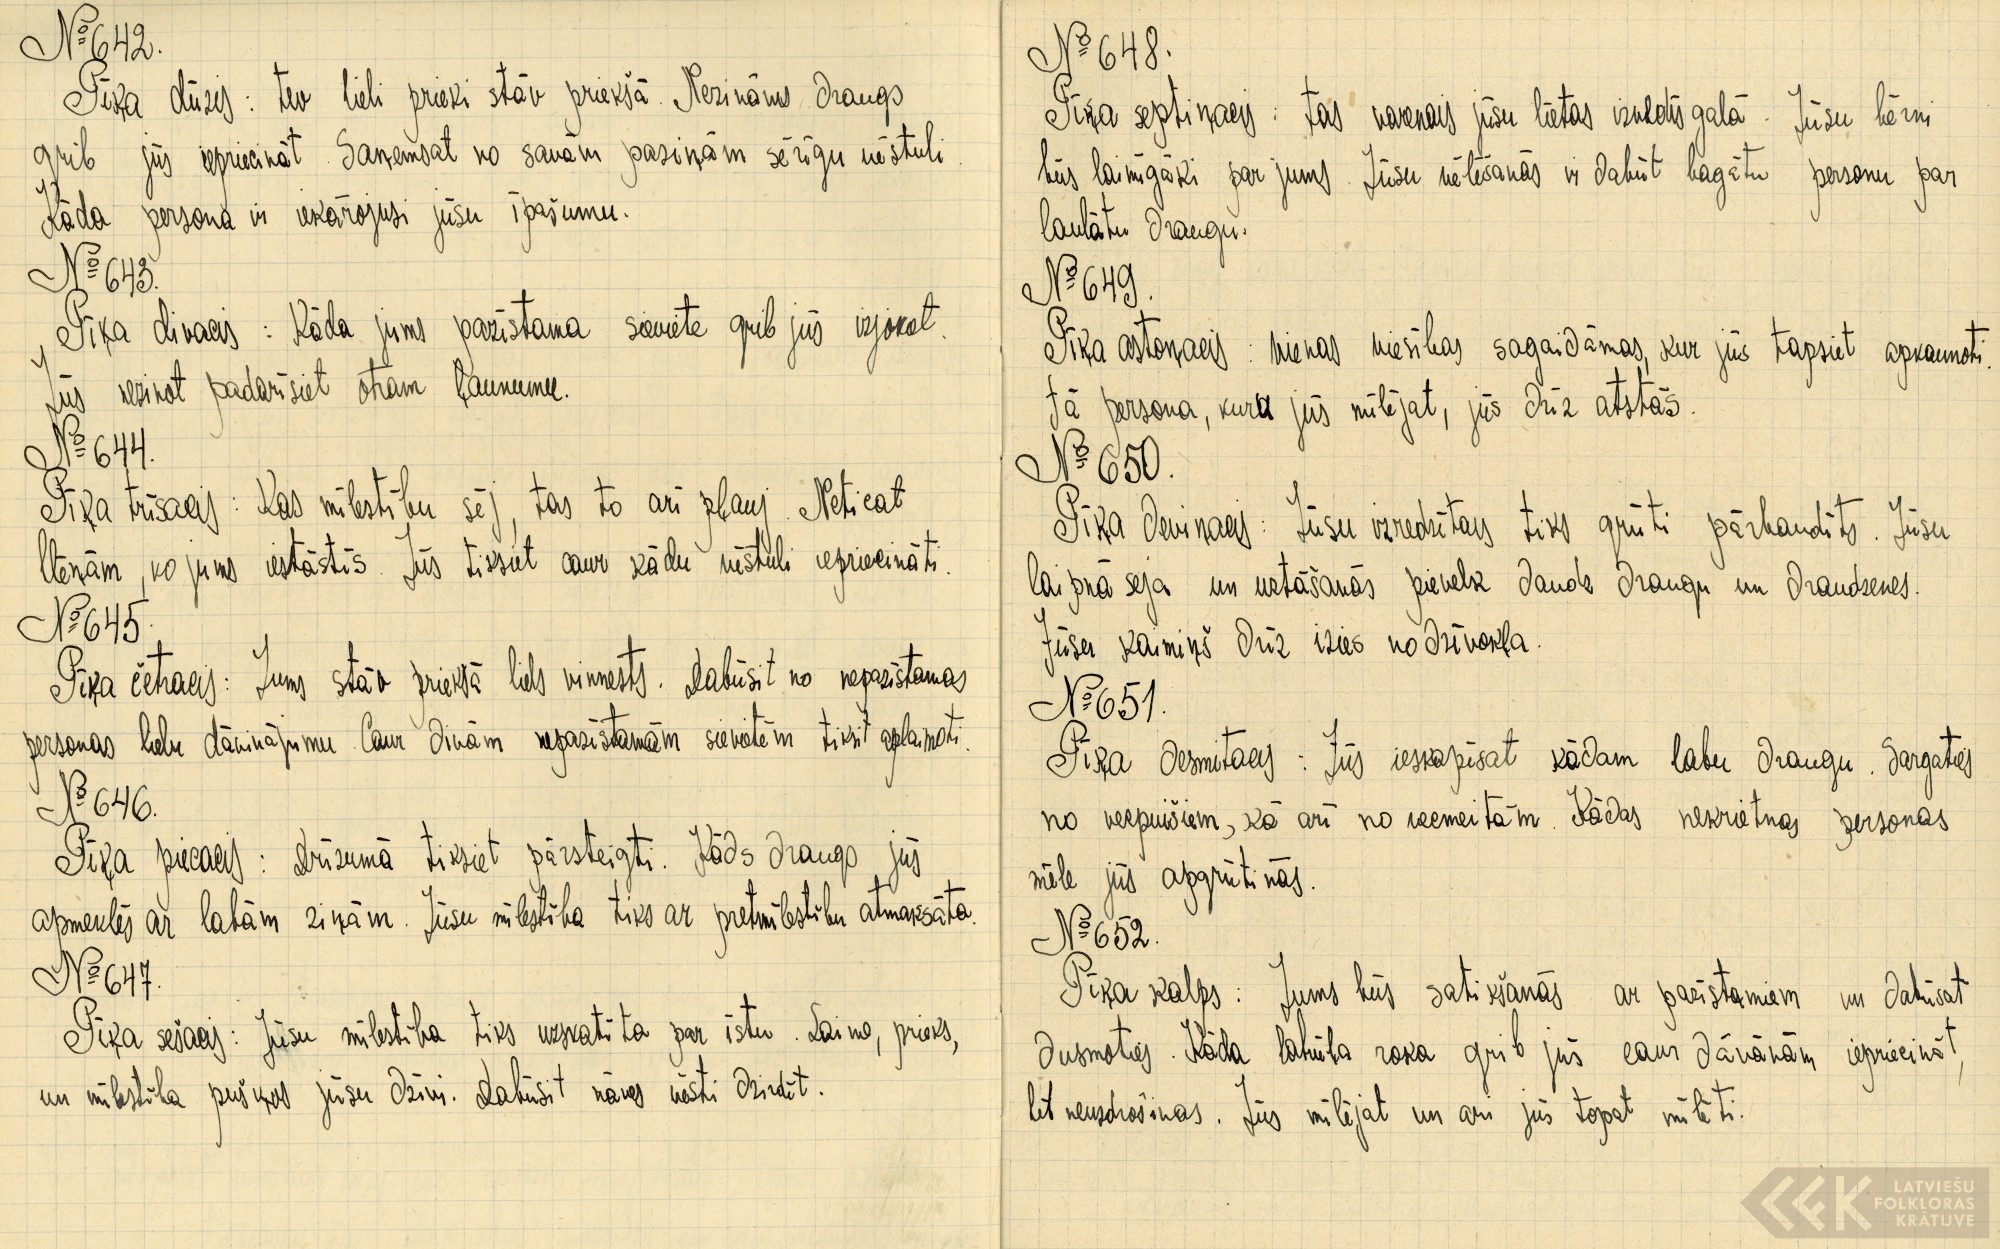 № 642.
Pīķa dūzis: tev lieli prieki stāv priekšā. Nezināms draugs
grib jūs iepriecināt. Saņemsat no savām paziņām sērīgu vēstuli.
Kāda persona ir iekārojusi jūsu īpašumu.
№ 643.
Pīķa divacis: Kāda jums pazīstama sieviete grib jūs izjokot.
Jūs nezinot padarīsiet otram ļaunumu.
№ 644.
Pīķa trīsacis: Kas mīlestību sēj, tas to arī pļauj. Neticat
ļienām, ko jums iestāstīs. Jūs tiksiet caur kādu vēstuli iepriecināti.
№ 645.
Pīķa četracis: Jums stāv priekšā liels vinnests. Dabūsit no nepazīstamas
personas lielu dāvinājumu. Caur divām nepazīstamām sievietēm tiksit aplaimoti.
№ 646.
Pīķa piecacis: Drīzumā tiksiet pārsteigti. Kāds draugs jūs
apmeklēs ar labām ziņām. Jūsu mīlestība tiks ar pretmīlestību atmaksāta.
№ 647.
Pīķa sešacis: Jūsu mīlestība tiks uzskatīta par īstu. Laime, prieks,
un mīlestība pušķos jūsu dzīvi. Dabūsit nāves vēsti dzirdēt.
№ 648.
Pīķa septiņacis: tas varenais jūsu lietas izvedīs galā. Jūsu bērni
būs laimīgāki par jums. Jūsu vēlēšanās ir dabūt bagātu personu par
laulātu draugu.
№ 649.
Pīķa astoņacis: vienas viesības sagaidāmas, kur jūs tapsiet apkaunoti.
Tā persona, kura jūs mīlējat, jūs drīz atstās.
№ 650.
Pīķa deviņacis: Jūsu izredzētais tiks grūti pārbaudīts. Jūsu
laipnā seja un uzvešanās pievelk daudz draugu un draudzenes.
Jūsu kaimiņš drīz izies no dzīvokļa.
№ 651.
Pīķa desmitacis: Jūs ieskapīsat kādam labu draugu. Sargaties
no vecpuišiem, kā arī no vecmeitām. Kādas nekrietnas personas
mēle jūs apgrūtinās.
№ 652.
Pīķa kalps: Jums būs satikšanās ar pazīstamiem un dabūsat
dusmoties. Kāda labvēla roka grib jūs caur dāvanām iepriecināt,
bet neuzdrošinas. Jūs mīlējat un arī jūs topat mīlēti.
LATVIEŠU
FOLKLORAS
KRĀTUVE